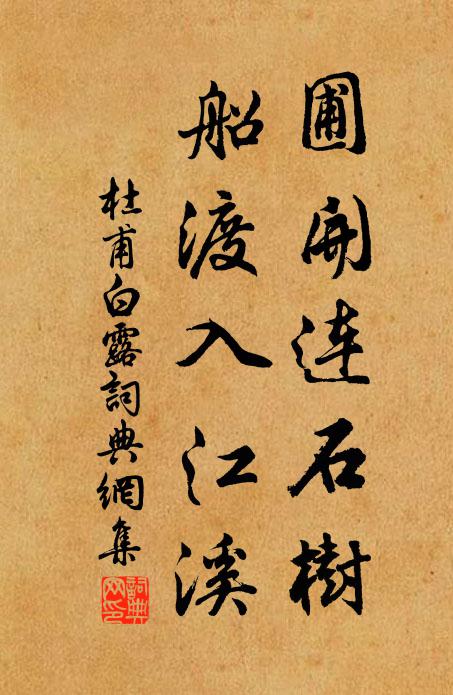 圃開連石樹
船渡入江溪
杜甫白露詞典網集
詞典網印